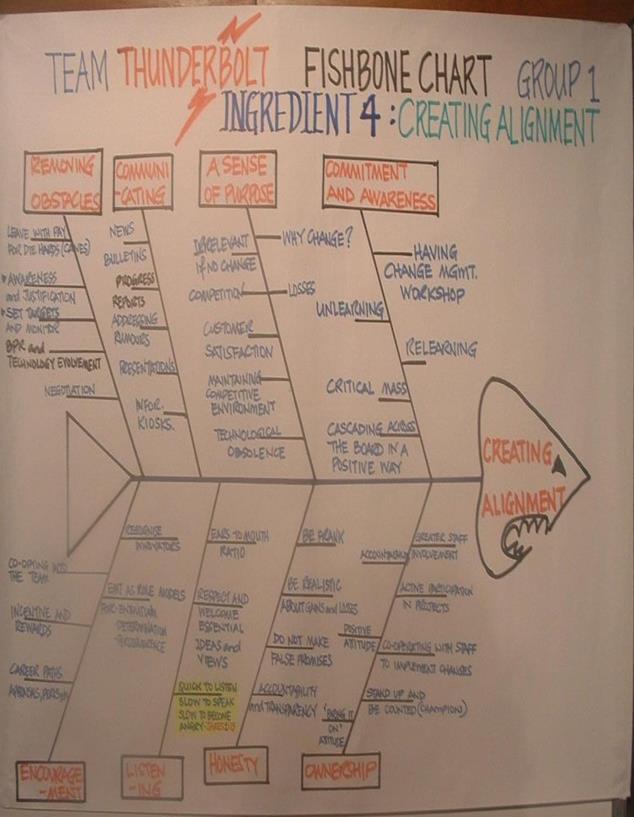 TEAM THUNDERBOLT FISHBONE CHART GROUP 1
INGREDIENT 4 : CREATING ALIGNMENT
REMOVING
OBSTACLES
LEAVE WITH PAY
FOR DIE HARDS
AWARENESS
and JUSTIFICATION
SET TARGETS
AND MONITOR
BPR and
TECHNOLOGY EVOLVEMENT
NEGOTIATION
COMMUNI
-CATING
NEWS
BULLETINS
PROGRESS
REPORTS
ADDRESSING
RUMOURS
PRESENTATIONS
INFOR.
KIOSKS.
A SENSE
OF PURPOSE
IRRELEVANT
if NO CHANGE
COMPETITION
CUSTOMER
SATISFACTION
MAINTAINING
COMPETITIVE
ENVIRONMENT
TECHNOLOGICAL
OBSOLENCE
WHY CHANGE?
LOSSES
COMMITMENT
AND AWARENESS
UNLEARNING
CRITICAL MASS
CASCADING ACROSS
THE BOARD IN A
POSITIVE WAY
HAVING
CHANGE MGMT.
WORKSHOP
RELEARNING
CREATING
ALIGNMENT
CO-OPTING INTO
THE TEAM
INCENTIVE AND
REWARDS
CAREER PATHS
RECOGNISE
INNOVATORS
AS ROLE MODELS
DETERMINATION
ENCOURAGE
-MENT
EARS TO MOUTH
RATIO
RESPECT AND
WELCOME
ESSENTIAL
IDEAS and
VIEWS
QUICK TO LISTEN
SLOW TO SPEAK
SLOW TO BECOME
ANGRY
LISTEN
-ING
BE FRANK
BE REALISTIC
ABOUT GAINS and LOSSES
DO NOT MAKE
FALSE PROMISES
ACCOUNTABILITY
and TRANSPARENCY
HONESTY
GREATER STAFF
INVOLVEMENT
ACCOUNTABILITY
ACTIVE PARTICIPATION
IN PROJECTS
POSITIVE
ATTITUDE
CO-OPERATING WITH STAFF
TO IMPLEMENT CHANGES
STAND UP AND
BE COUNTED (CHAMPION)
'BRING IT
ON'
ATTITUDE
OWNERSHIP